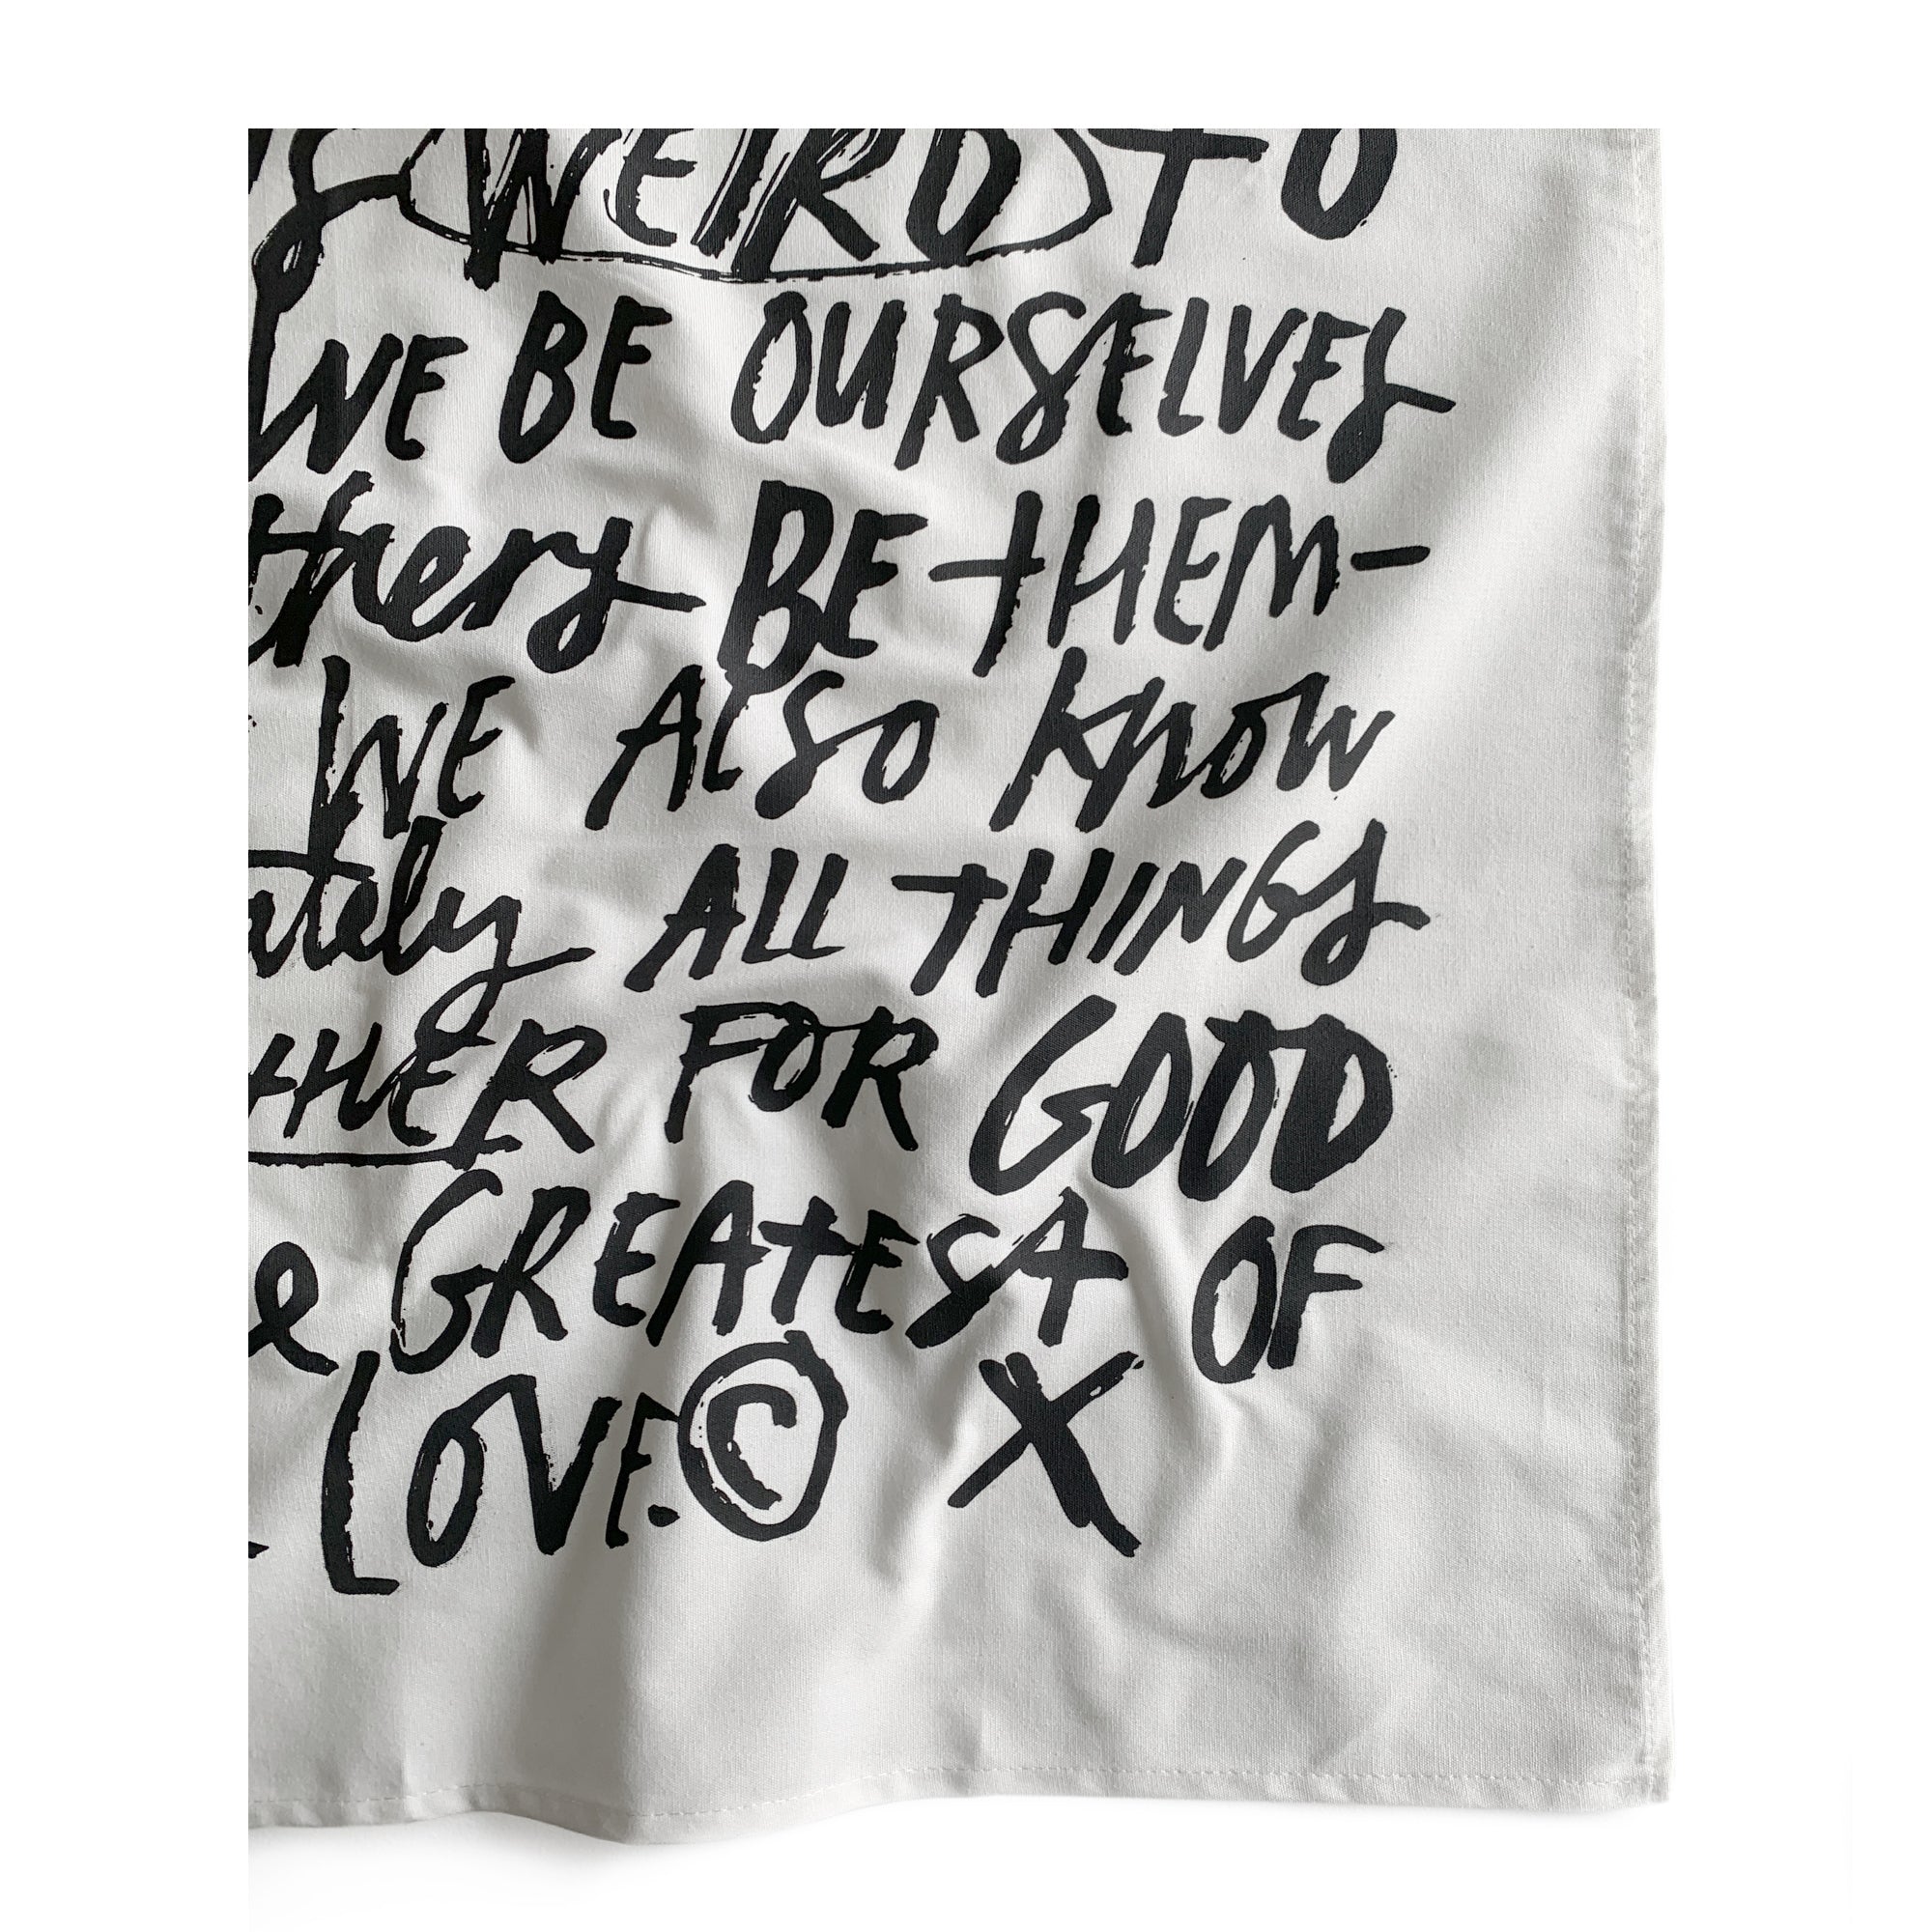 WEIRD TO
WE BE OURSELVES
BE THEM-
WE ALSO KNOW
ALL THINGS
FOR GOOD
GREATEST OF
LOVE. © X